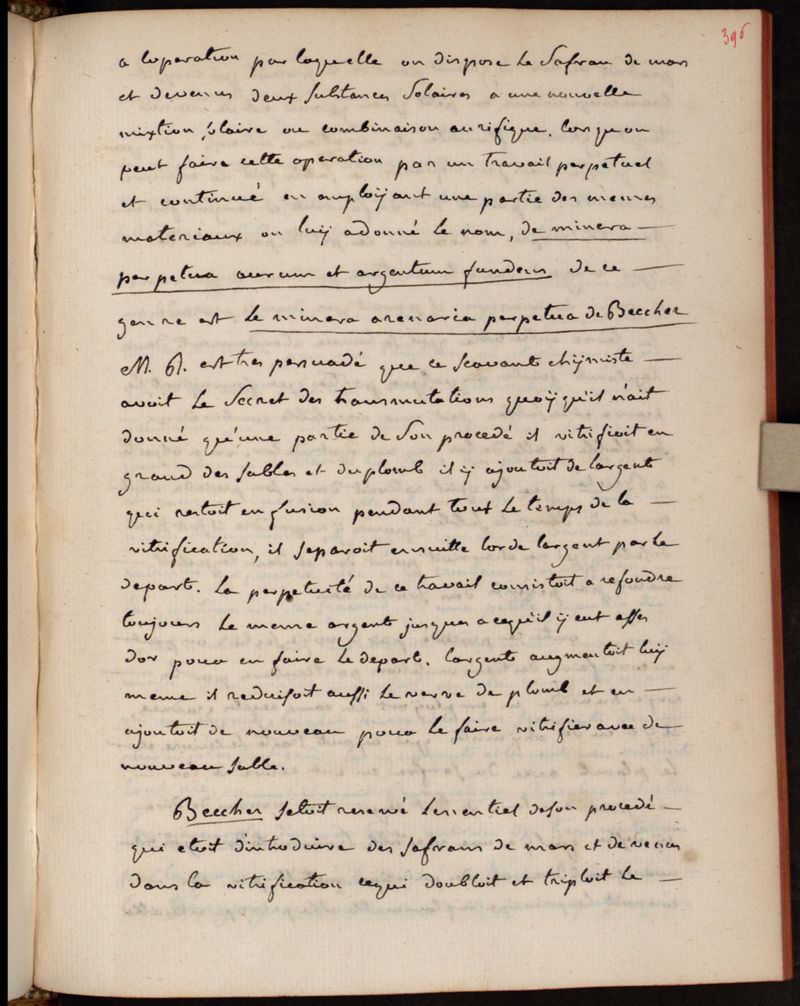 396
a loperation par laquelle on dispose le Safran de mars
et de venus deux substances Solaires a une nouvelle
mixtion solaire ou combinaison aurifique. lorsqu'on
peut faire cette operation par un travail perpetuel
et continué en employant une partie des memes
materiaux on luy a donné le nom, de minera
perpetua aurum et argentum fundens de ce
genre est le minera arenaria perpetua de Beccher
M. R. est tres persuadé que ce scavant chymiste
avoit le Secret des transmutations quoyqu'il n'ait
donné qu'une partie de Son procedé il vitrifioit en
grand des sables et du plomb il y ajoutoit de largent
qui restoit en fusion pendant tout le temps de la
vitrification, il separoit ensuitte lor de largent par le
depart. La perpetuité de ce travail consistoit a refondre
toujours le meme argent jusques a cequ'il y eut asses
dor pour en faire le depart. largent augmentoit luy
meme il reduisoit aussi le verre de plomb et en
ajoutoit de nouveau pour le faire vitrifier avec de
nouveau sable.
Beccher setoit reservé lessentiel de son procedé
qui etoit d'introduire des safrans de mars et de venus
dans la vitrification cequi doubloit et triploit le